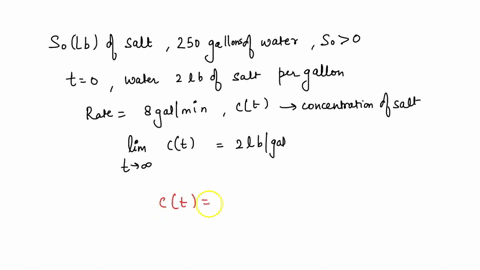 S₀(Lb) of salt, 250 gallons of water, S₀ > 0
t=0, water 2 lb of salt per gallon
Rate = 8 gal/min, c(t) → concentration of salt
lim t→∞ c(t) = 2 lb/gal
c(t) =